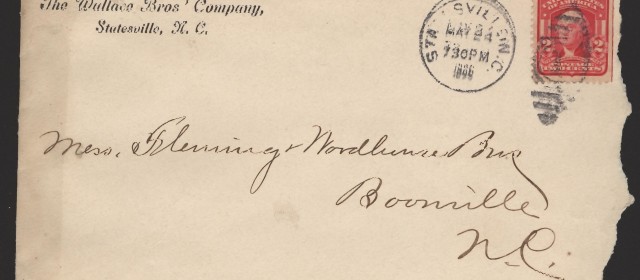 The Wallace Bros' Company,
Statesville, N. C.
STATESVILLE, N.C.
MAY 24
730PM
1906
2 2
POSTAGE
TWO CENTS
Mess. Fleming & Woodhouse Bros
Boonville
N.C.